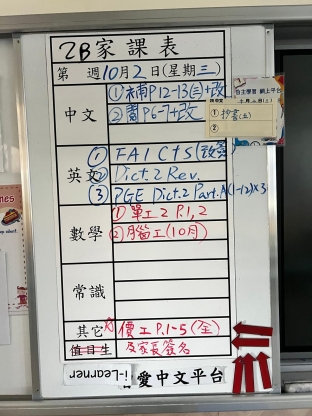 2B家課表
第 週10月2日(星期三)
中文
①補P12-13(三)+改
②圖P6-7+改
自主學習 網上平台
①抄書(五)
②
英文
① FA1 C+S (改簽)
② Dict. 2 Rev.
③ PGE Dict. 2 Part.A(1-12)×3
數學
①單工2 P.1,2
②腦工(10月)
常識
其它
價工P.1-5(全)
值日生
及家長簽名
i-Learner
愛中文平台